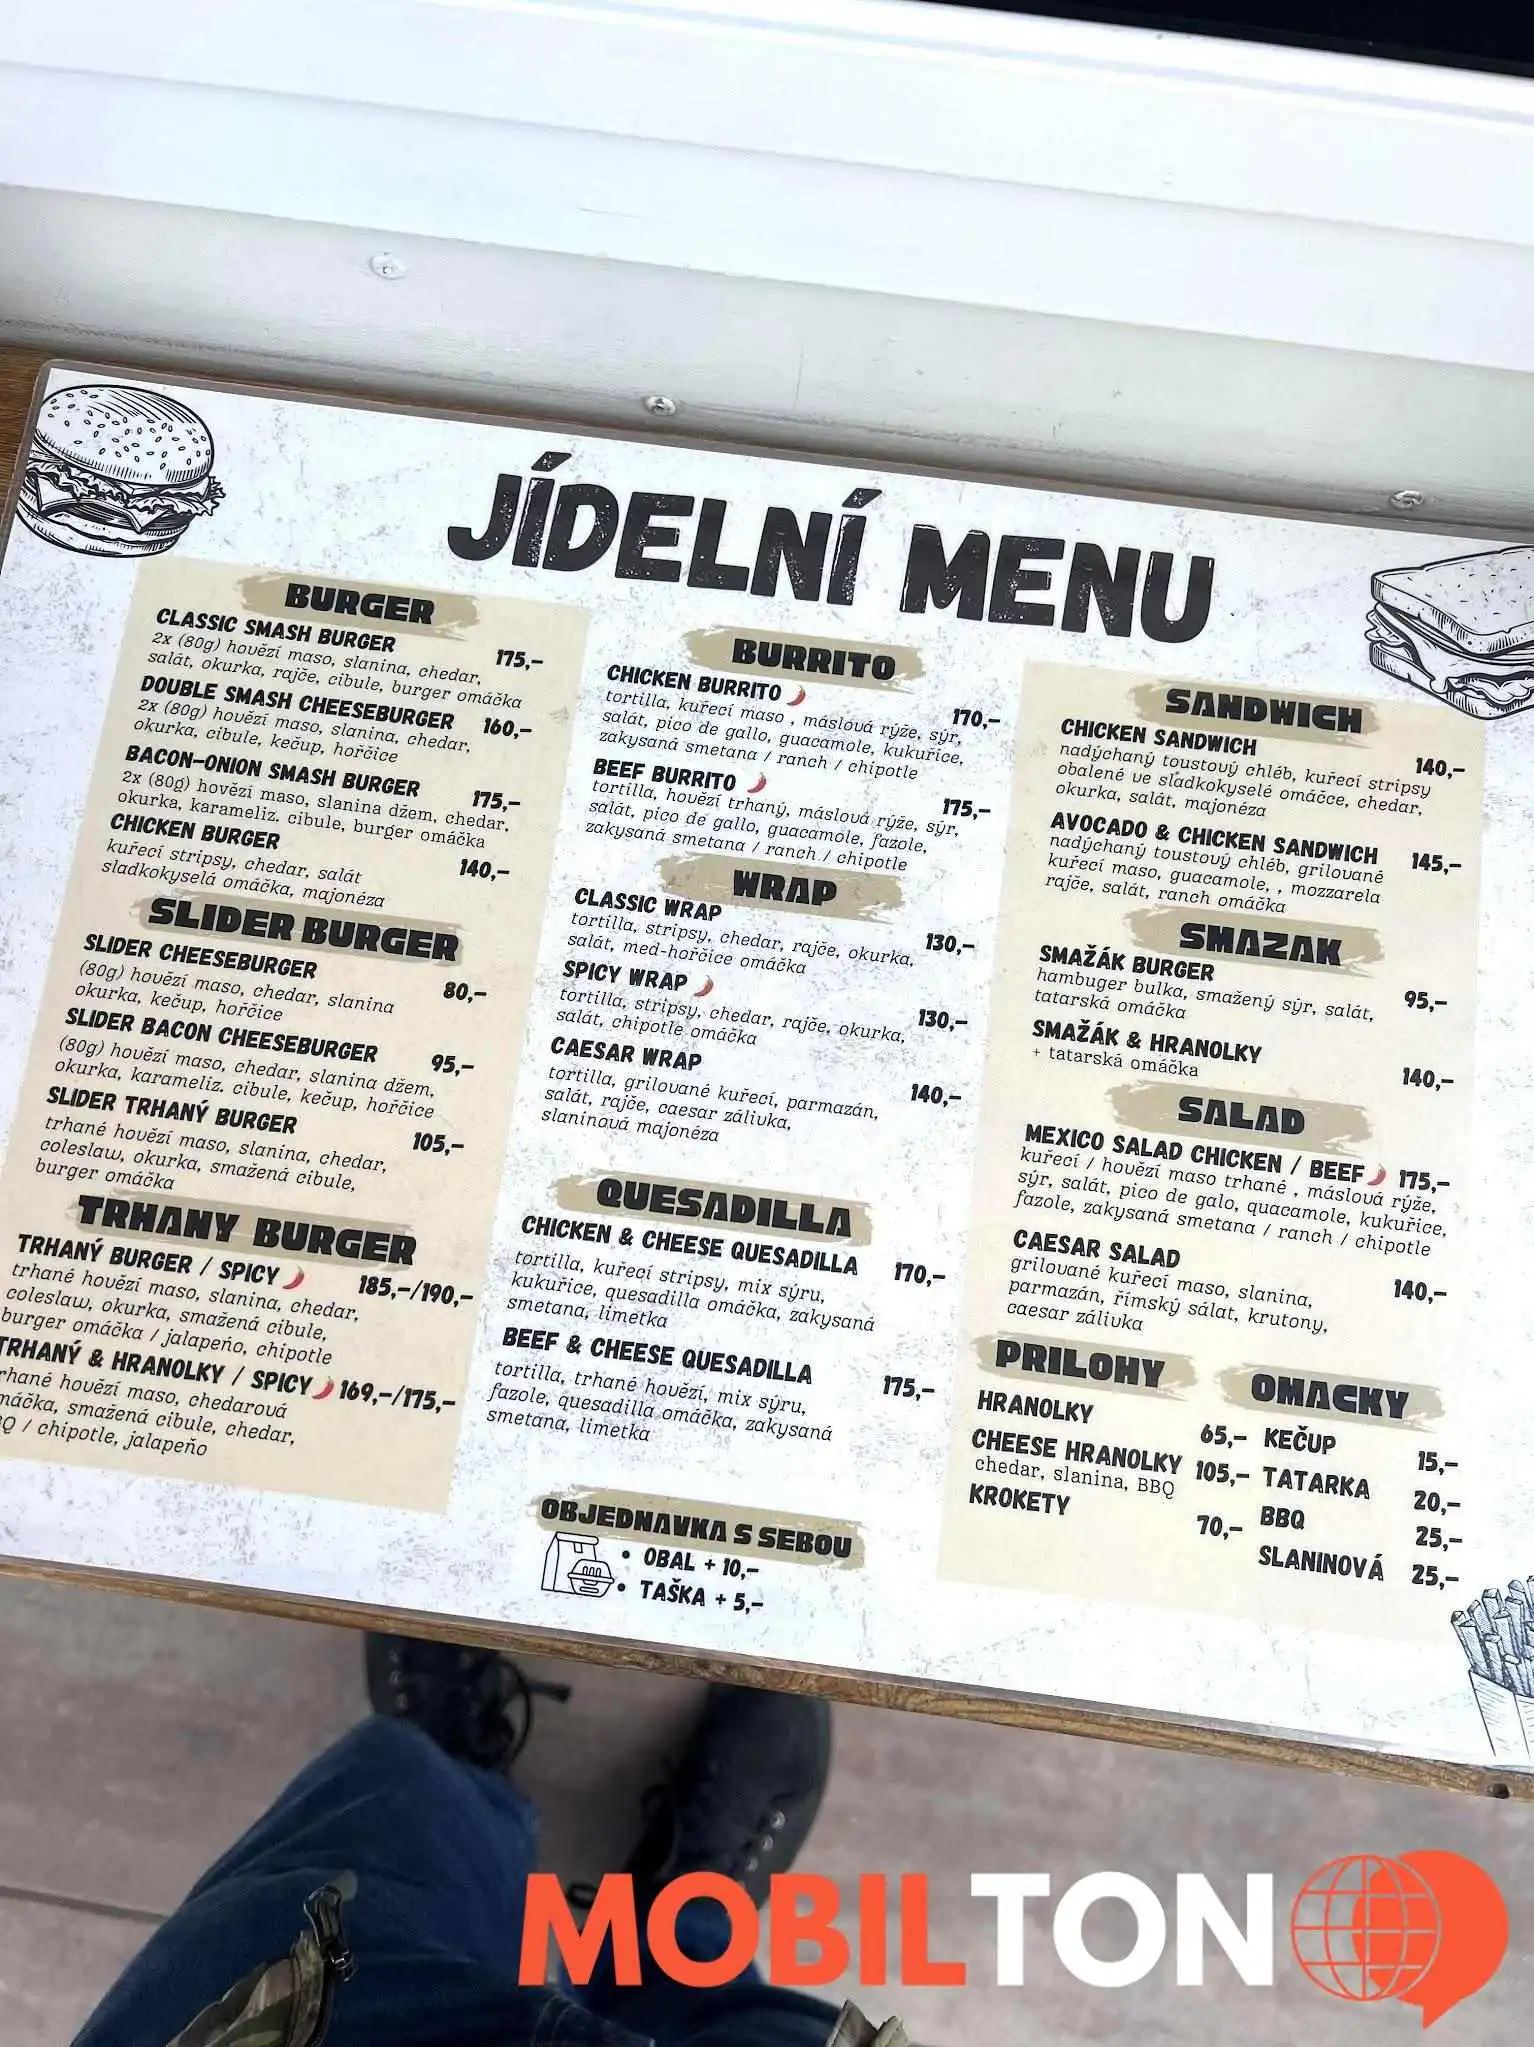 JÍDELNÍ MENU
BURGER
CLASSIC SMASH BURGER 175,-
2x (80g) hovězí maso, slanina, chedar,
salát, okurka, rajče, cibule, burger omáčka
DOUBLE SMASH CHEESEBURGER 160,-
2x (80g) hovězí maso, slanina, chedar,
okurka, cibule, kečup, hořčice
BACON-ONION SMASH BURGER 175,-
2x (80g) hovězí maso, slanina džem, chedar,
okurka, karameliz. cibule, burger omáčka
CHICKEN BURGER 140,-
kuřecí stripsy, chedar, salát
sladkokyselá omáčka, majonéza
SLIDER BURGER
SLIDER CHEESEBURGER 80,-
(80g) hovězí maso, chedar, slanina
okurka, kečup, hořčice
SLIDER BACON CHEESEBURGER 95,-
(80g) hovězí maso, chedar, slanina džem,
okurka, karameliz. cibule, kečup, hořčice
SLIDER TRHANÝ BURGER 105,-
trhané hovězí maso, slanina, chedar,
coleslaw, okurka, smažená cibule,
burger omáčka
TRHANY BURGER
TRHANÝ BURGER / SPICY 185,-/190,-
trhané hovězí maso, slanina, chedar,
coleslaw, okurka, smažená cibule,
burger omáčka / jalapeño, chipotle
TRHANÝ & HRANOLKY / SPICY 169,-/175,-
rhané hovězí maso, chedarová
máčka, smažená cibule, chedar,
Q / chipotle, jalapeño
BURRITO
CHICKEN BURRITO 170,-
tortilla, kuřecí maso , máslová rýže, sýr,
salát, pico de gallo, guacamole, kukuřice,
zakysaná smetana / ranch / chipotle
BEEF BURRITO 175,-
tortilla, hovězí trhaný, máslová rýže, sýr,
salát, pico de gallo, guacamole, fazole,
zakysaná smetana / ranch / chipotle
WRAP
CLASSIC WRAP 130,-
tortilla, stripsy, chedar, rajče, okurka,
salát, med-hořčice omáčka
SPICY WRAP 130,-
tortilla, stripsy, chedar, rajče, okurka,
salát, chipotle omáčka
CAESAR WRAP 140,-
tortilla, grilované kuřecí, parmazán,
salát, rajče, caesar zálivka,
slaninová majonéza
QUESADILLA
CHICKEN & CHEESE QUESADILLA 170,-
tortilla, kuřecí stripsy, mix sýru,
kukuřice, quesadilla omáčka, zakysaná
smetana, limetka
BEEF & CHEESE QUESADILLA 175,-
tortilla, trhané hovězí, mix sýru,
fazole, quesadilla omáčka, zakysaná
smetana, limetka
OBJEDNAVKA S SEBOU
• OBAL + 10,-
• TAŠKA + 5,-
SANDWICH
CHICKEN SANDWICH 140,-
nadýchaný toustový chléb, kuřecí stripsy
obalené ve sladkokyselé omáčce, chedar,
okurka, salát, majonéza
AVOCADO & CHICKEN SANDWICH 145,-
nadýchaný toustový chléb, grilované
kuřecí maso, guacamole, , mozzarela
rajče, salát, ranch omáčka
SMAZAK
SMAŽÁK BURGER 95,-
hambuger bulka, smažený sýr, salát,
tatarská omáčka
SMAŽÁK & HRANOLKY 140,-
+ tatarská omáčka
SALAD
MEXICO SALAD CHICKEN / BEEF 175,-
kuřecí / hovězí maso trhané , máslová rýže,
sýr, salát, pico de galo, quacamole, kukuřice,
fazole, zakysaná smetana / ranch / chipotle
CAESAR SALAD 140,-
grilované kuřecí maso, slanina,
parmazán, římský sálat, krutony,
caesar zálivka
PRILOHY
HRANOLKY 65,-
CHEESE HRANOLKY 105,-
chedar, slanina, BBQ
KROKETY 70,-
OMACKY
KEČUP 15,-
TATARKA 20,-
BBQ 25,-
SLANINOVÁ 25,-
MOBILTON